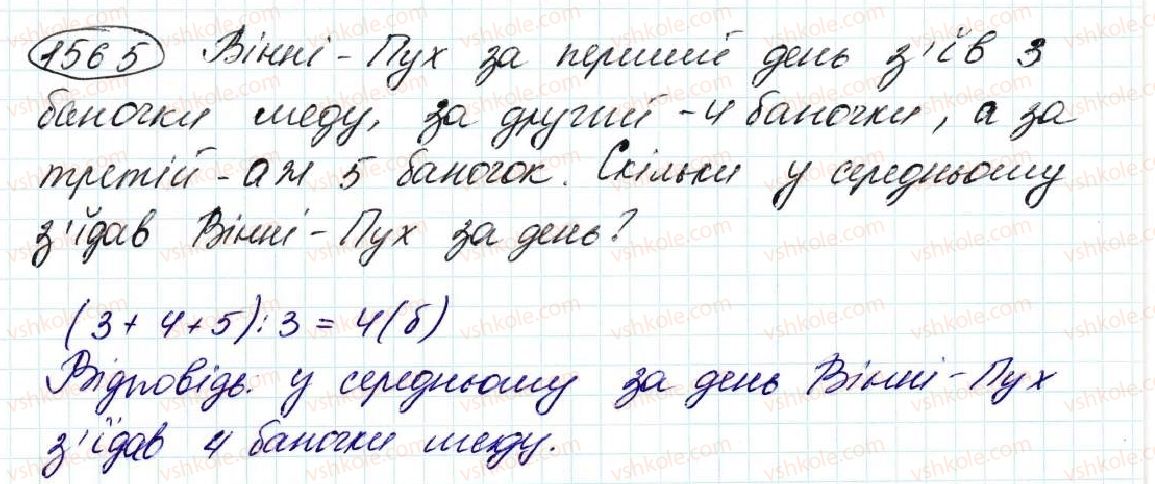 1565 Вінні-Пух за перший день з'їв 3
баночки меду, за другий - 4 баночки, а за
третій - аж 5 баночок. Скільки у середньому
з'їдав Вінні-Пух за день?
(3 + 4 + 5) : 3 = 4 (б)
Відповідь: у середньому за день Вінні-Пух
з'їдав 4 баночки меду.